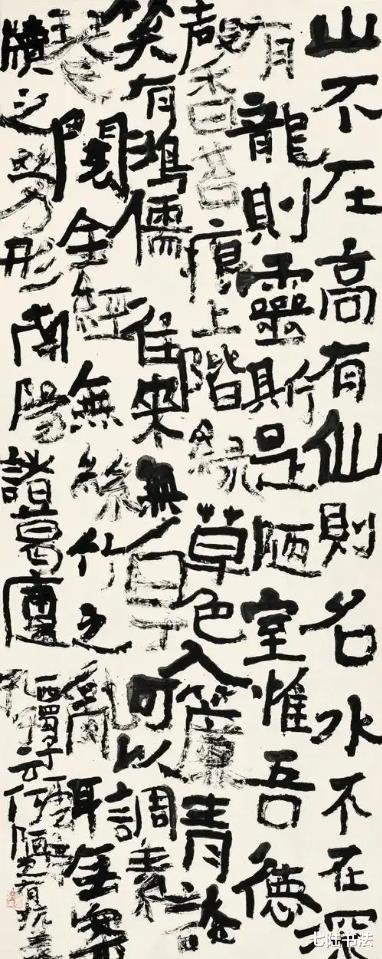 山不在高有仙則名水不在深
有龍則靈斯是陋室惟吾德
馨苔痕上階綠草色入簾青談
笑有鴻儒往來無白丁可以調素
琴閱金經無絲竹之亂耳無案
牘之勞形南陽諸葛廬西蜀子雲亭
孔子云何陋之有
七陆书法